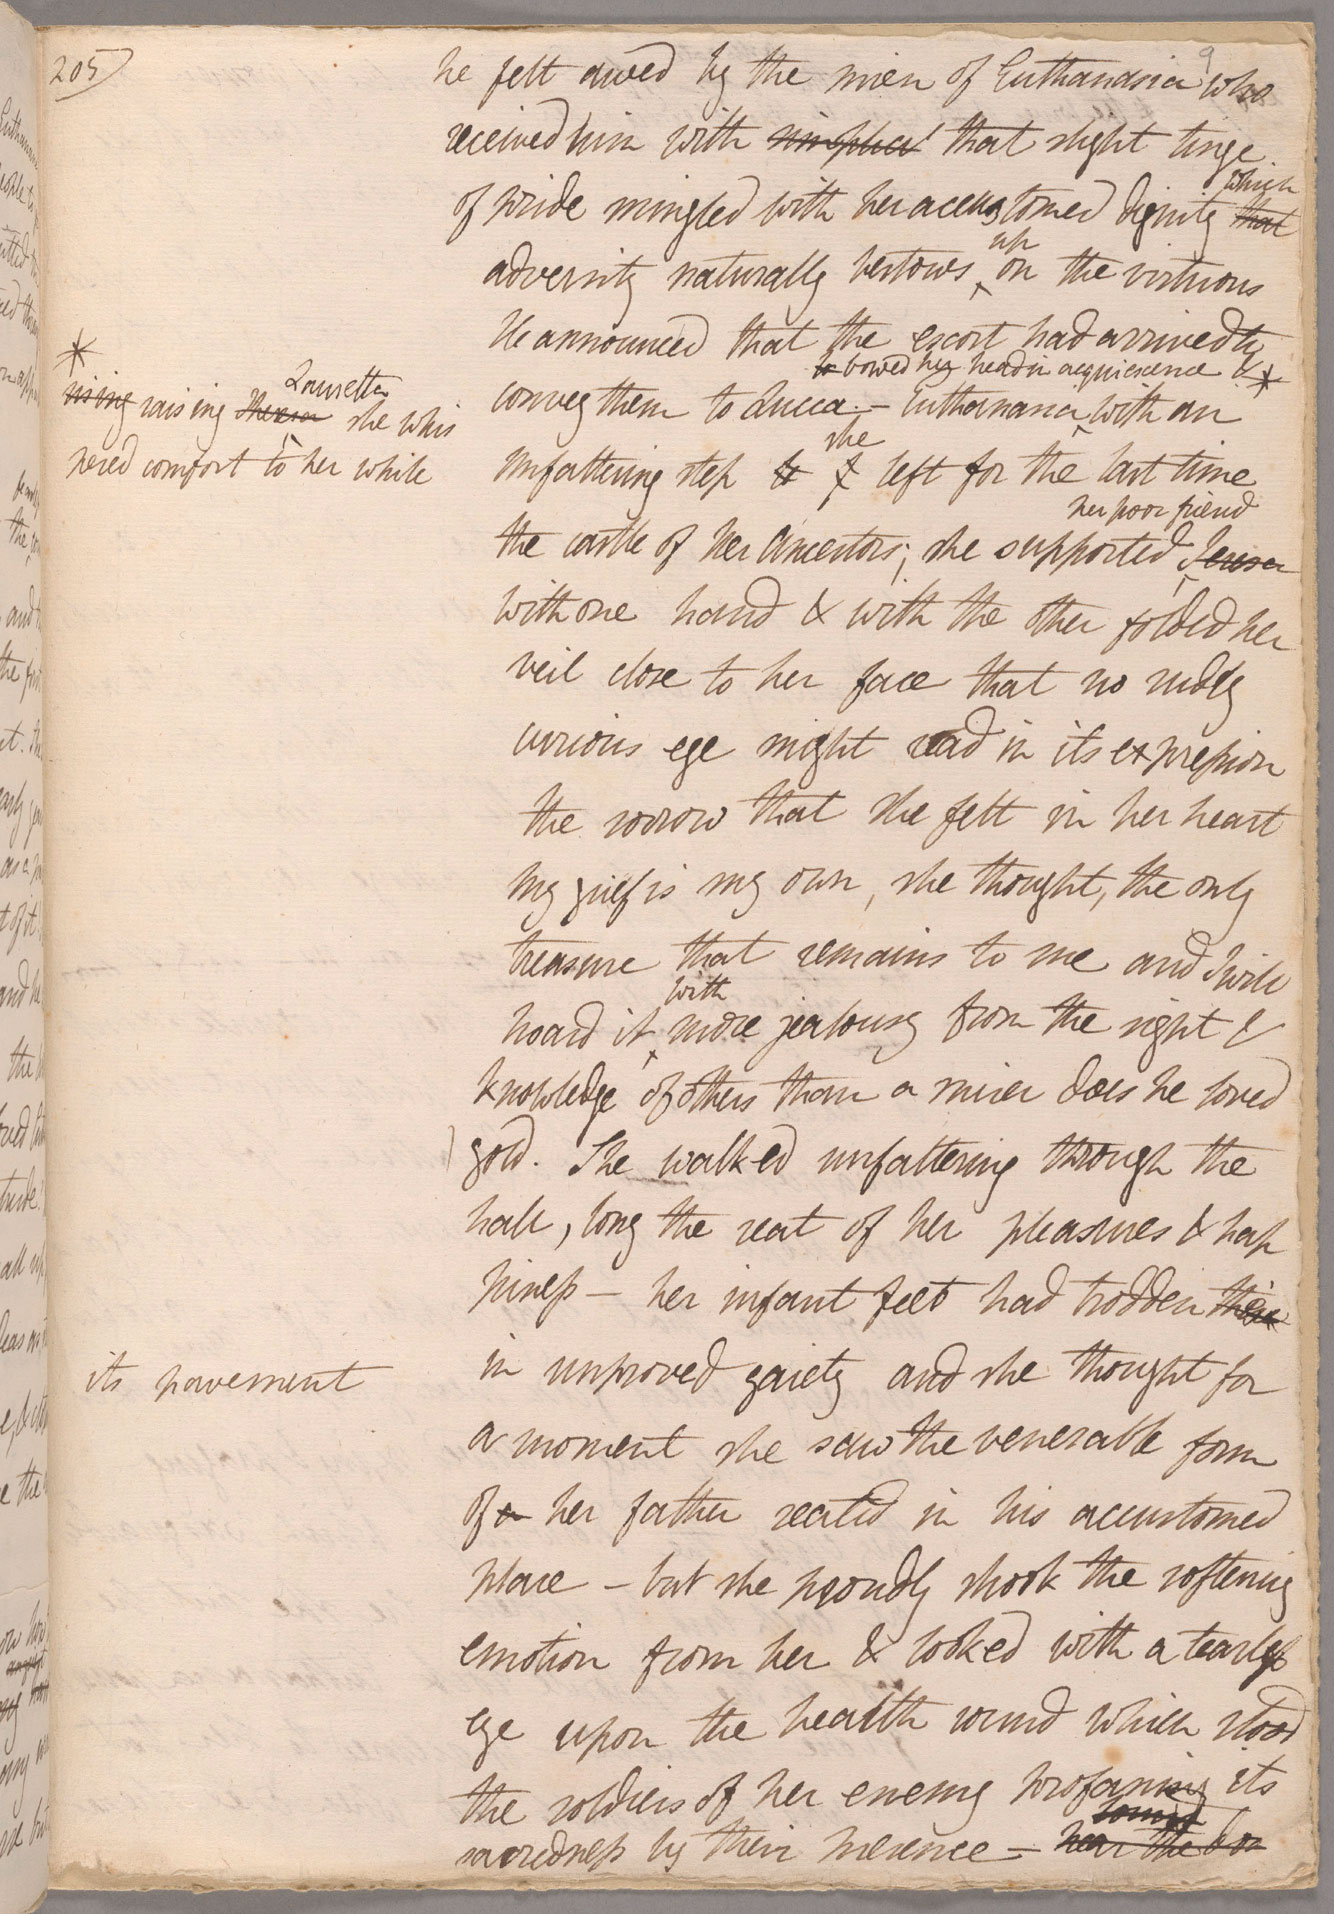 205
9
he felt awed by the mien of Euthanasia who
received him with that slight tinge
of pride mingled with her accustomed dignity that
which
adversity naturally bestows on the virtuous
up
He announced that the escort had arrived to
bowed her head in acquiescence & *
convey them to Lucca. – Euthanasia with an
she
unfaltering step & left for the last time
her poor friend
the castle of her Ancestors; she supported Teresa
with one hand & with the other folded her
veil close to her face that no rudely
curious eye might read in its expression
the sorrow that she felt in her heart
My grief is my own, she thought, the only
treasure that remains to me and I will
with
hoard it more jealousy from the sight &
knowledge of others than a miser does he loved
gold. She walked unfaltering through the
hall, long the seat of her pleasures & hap
piness – her infant feet had trodden
in unproved gaiety and she thought for
a moment she saw the venerable form
of a her father seated in his accustomed
place – but she proudly shook the softening
emotion from her & looked with a tearless
eye upon the health round which stood
the soldiers of her enemy profaning its
sacredness by their presence – hear the
*
Lauretta
rising raising Theresa she whis
pered comfort to her while
its pavement